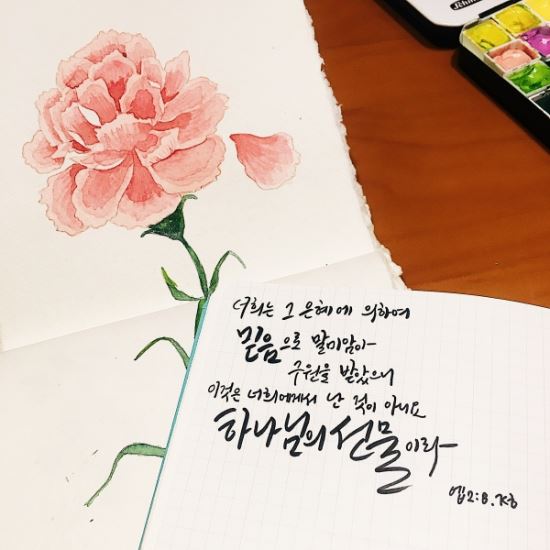 Schmin
너희는 그 은혜에 의하여
믿음으로 말미암아
구원을 받았으니
이것은 너희에게서 난 것이 아니요
하나님의 선물이라
엡2:8.